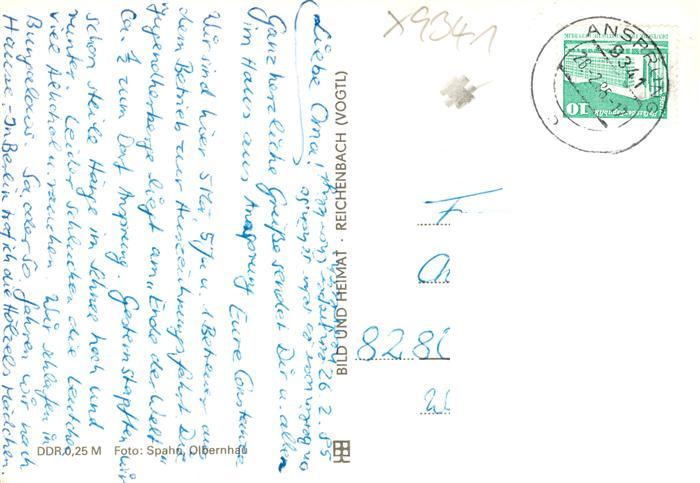 Liebe Oma!
26.2.85
Ganz herzliche Grüße sendet Dir u. allen
im Haus aus Ansprung Eure Constanze
Wir sind hier 5 u. 1 Betreuer aus
dem Betrieb zur Auszeichnungsfahrt. Die
Jugendherberge liegt am "Ende der Welt"
ca. 1/2 zum Dorf Ansprung. Gestern stapften wir
schon steile Hänge im Schnee hoch und
runter. Leider schlucken die Leutchen
viel Alkohol u. rauchen. Wir schlafen in
Bungalows. Sa. oder So. fahren wir nach
Hause - In Berlin traf ich die Mädchen.
DDR 0,25 M Foto: Spahn, Olbernhau
BILD UND HEIMAT · REICHENBACH (VOGTL)
X9341
ANSPRUNG
9341
10
F
8280